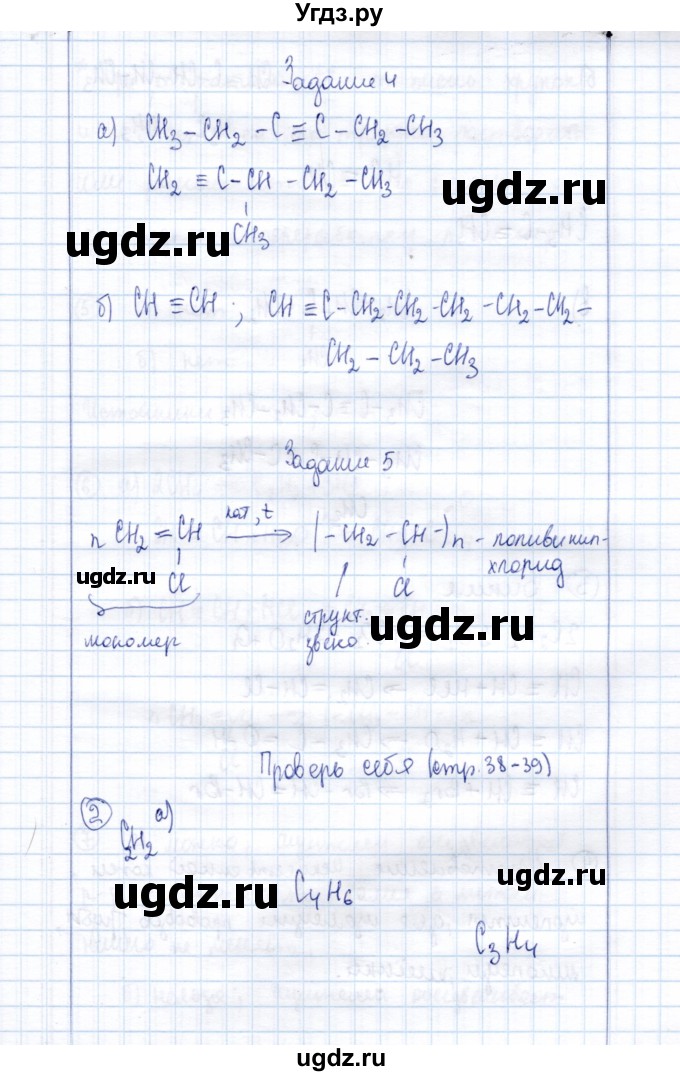 Угдз.ру
Задание 4
а) CH3-CH2-C≡C-CH2-CH3
CH2≡C-CH-CH2-CH3
ugdz.ru
ugdz.ru
CH3
б) CH≡CH; CH≡C-CH2-CH2-CH2-CH2-CH2-
CH2-CH2-CH3
Задание 5
n CH2=CH кат, t → (-CH2-CH-)n - поливинил-
хлорид
Cl Cl
ugdz.ru
мономер
структ.
звено
ugdz.ru
Проверь себя (стр. 38-39)
2 а)
C2H2
ugdz.ru
C4H6
ugdz.ru
C3H4
ugdz.ru